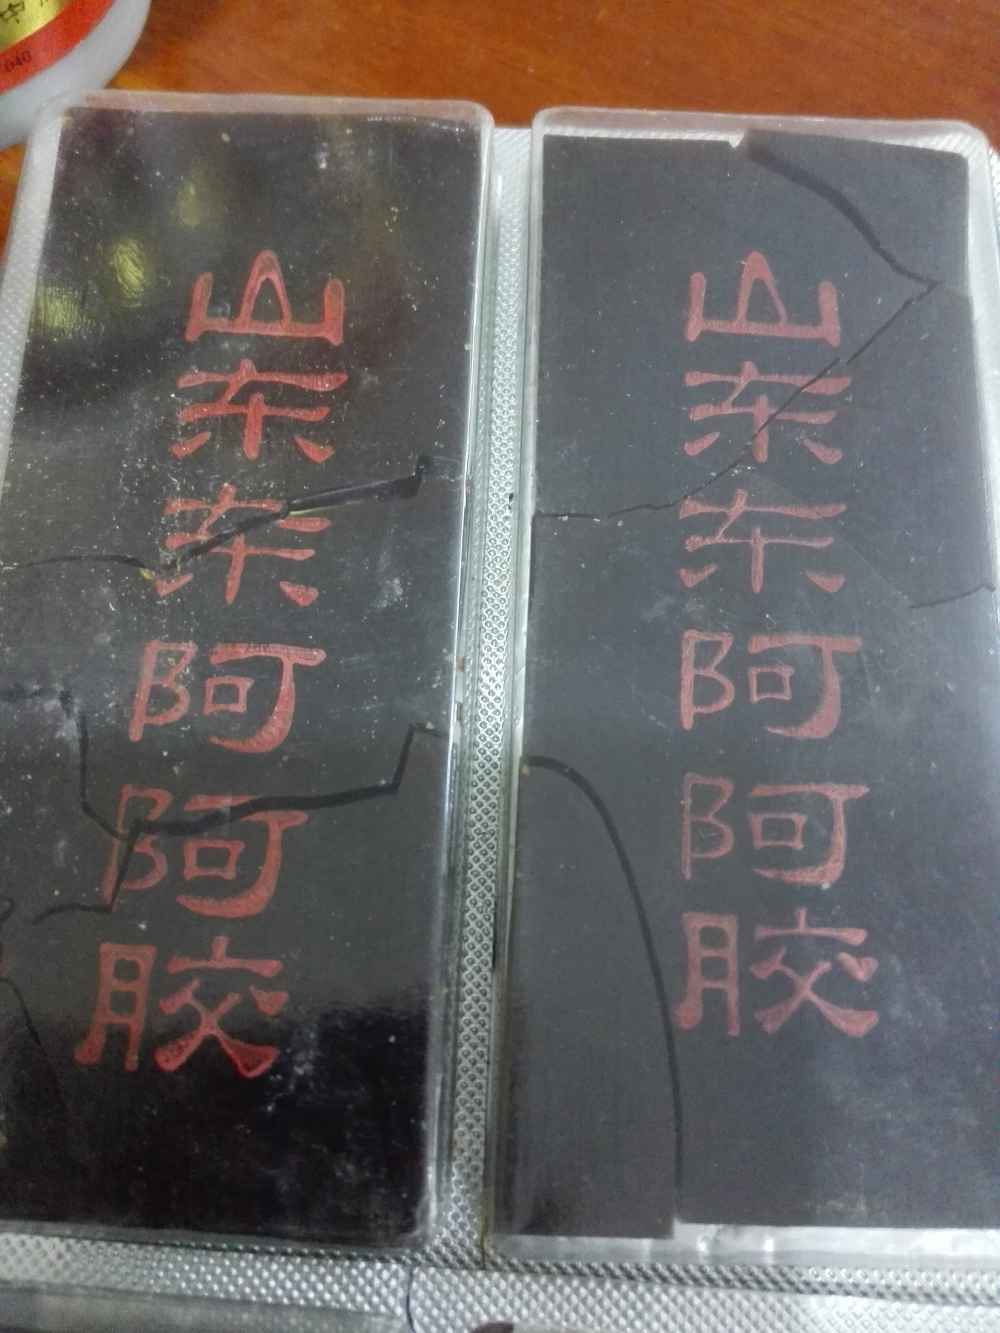 山东东阿阿胶
山东东阿阿胶
040